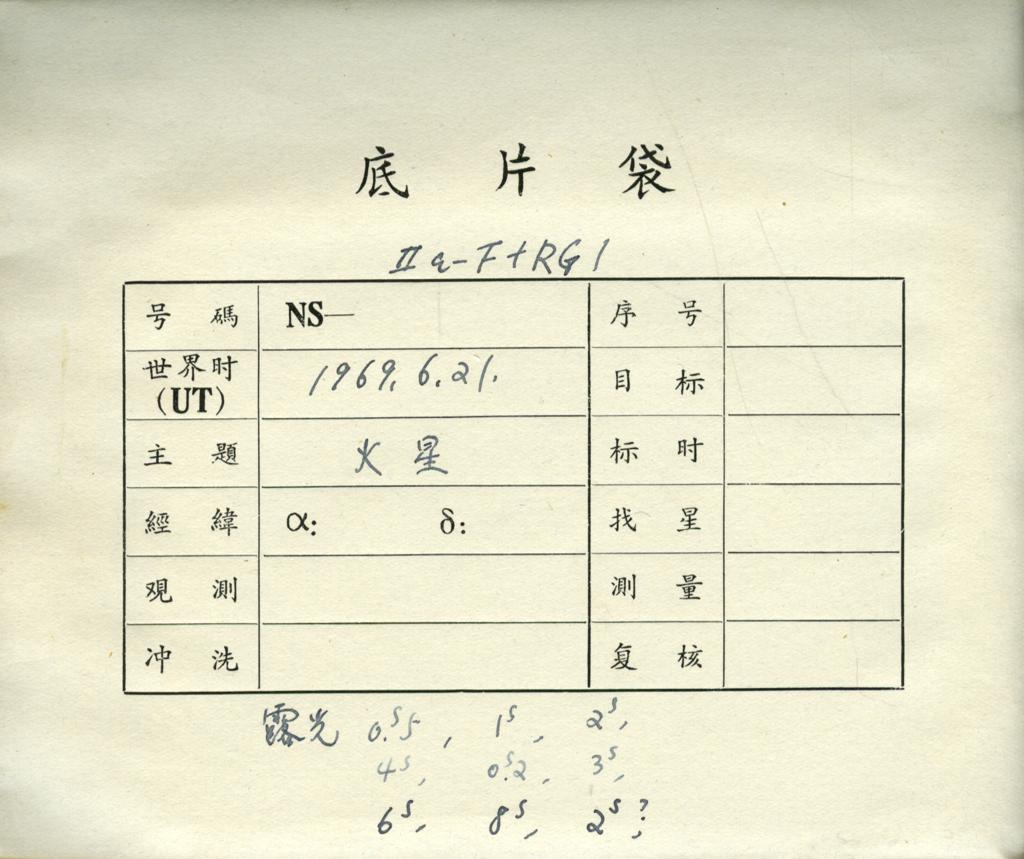 底片袋
IIa-F+RG1
号碼 NS— 序号
世界时(UT) 1969.6.21. 目标
主題 火星 标时
經緯 α: δ: 找星
观測 測量
冲洗 复核
露光 0.ˢ5, 1ˢ, 2ˢ,
4ˢ, 0ˢ.2, 3ˢ,
6ˢ, 8ˢ, 2ˢ?,